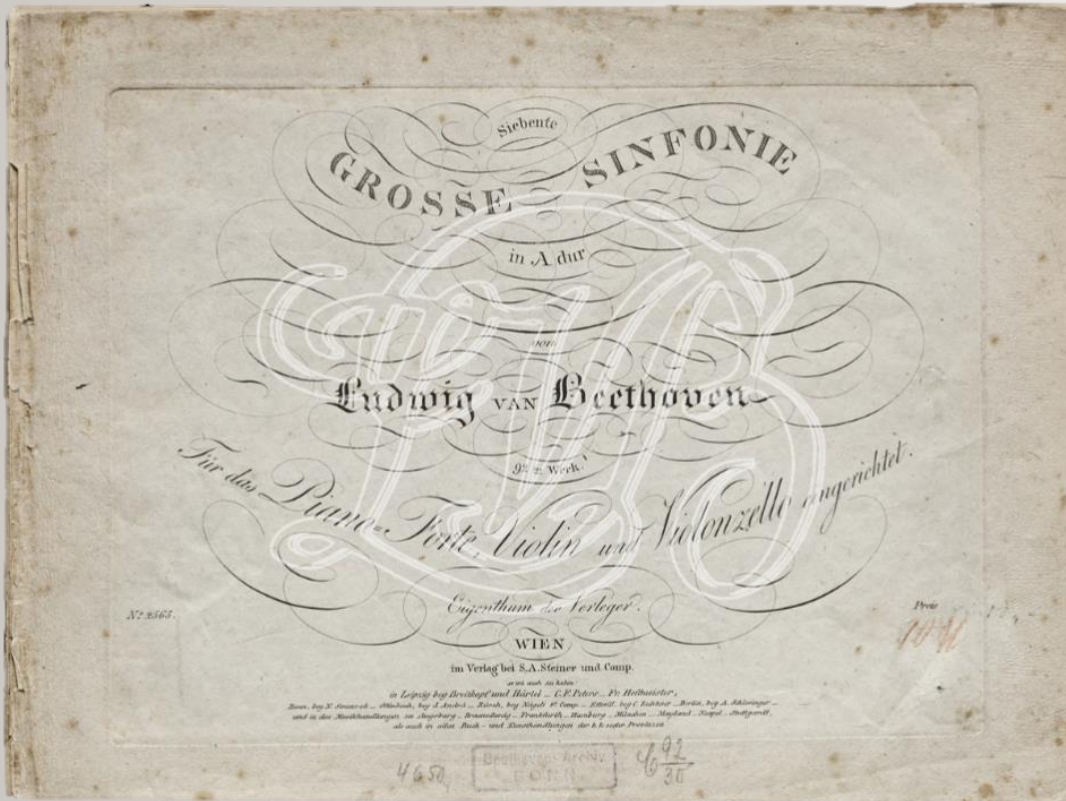 Siebente
GROSSE SINFONIE
in A dur
von
Ludwig VAN Beethoven
92tes Werk.
Für das Piano-Forte, Violin und Violonzello eingerichtet.
Eigenthum der Verleger.
No. 2565.
Preis
WIEN
im Verlag bei S.A. Steiner und Comp.
ist auch zu haben:
in Leipzig bey Breitkopf und Härtel _ C.F. Peters _ Fr. Hofmeister,
Bonn, bey N. Simrock _ Offenbach, bey J. André _ Zürch, bey Nägeli et Comp. _ bey C. _ Berlin, bey A. Schlesinger _
und in den Musikhandlungen zu Augsburg _ Braunschweig _ Frankfurth _ Hamburg _ München _ Mayland _ Neapel _ Stuttgardt,
als auch in allen Buch- und Kunsthandlungen der k.k. oester. Provinzen
4650
Beethoven-Archiv
BONN
92
30